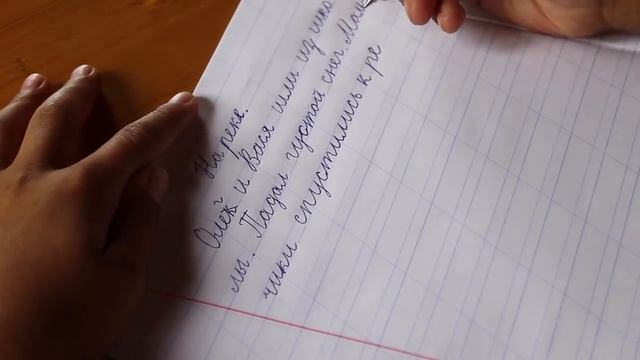 На реке.
Олег и Вася шли из шко
лы. Падал густой снег. Мал
чики спустились к ре